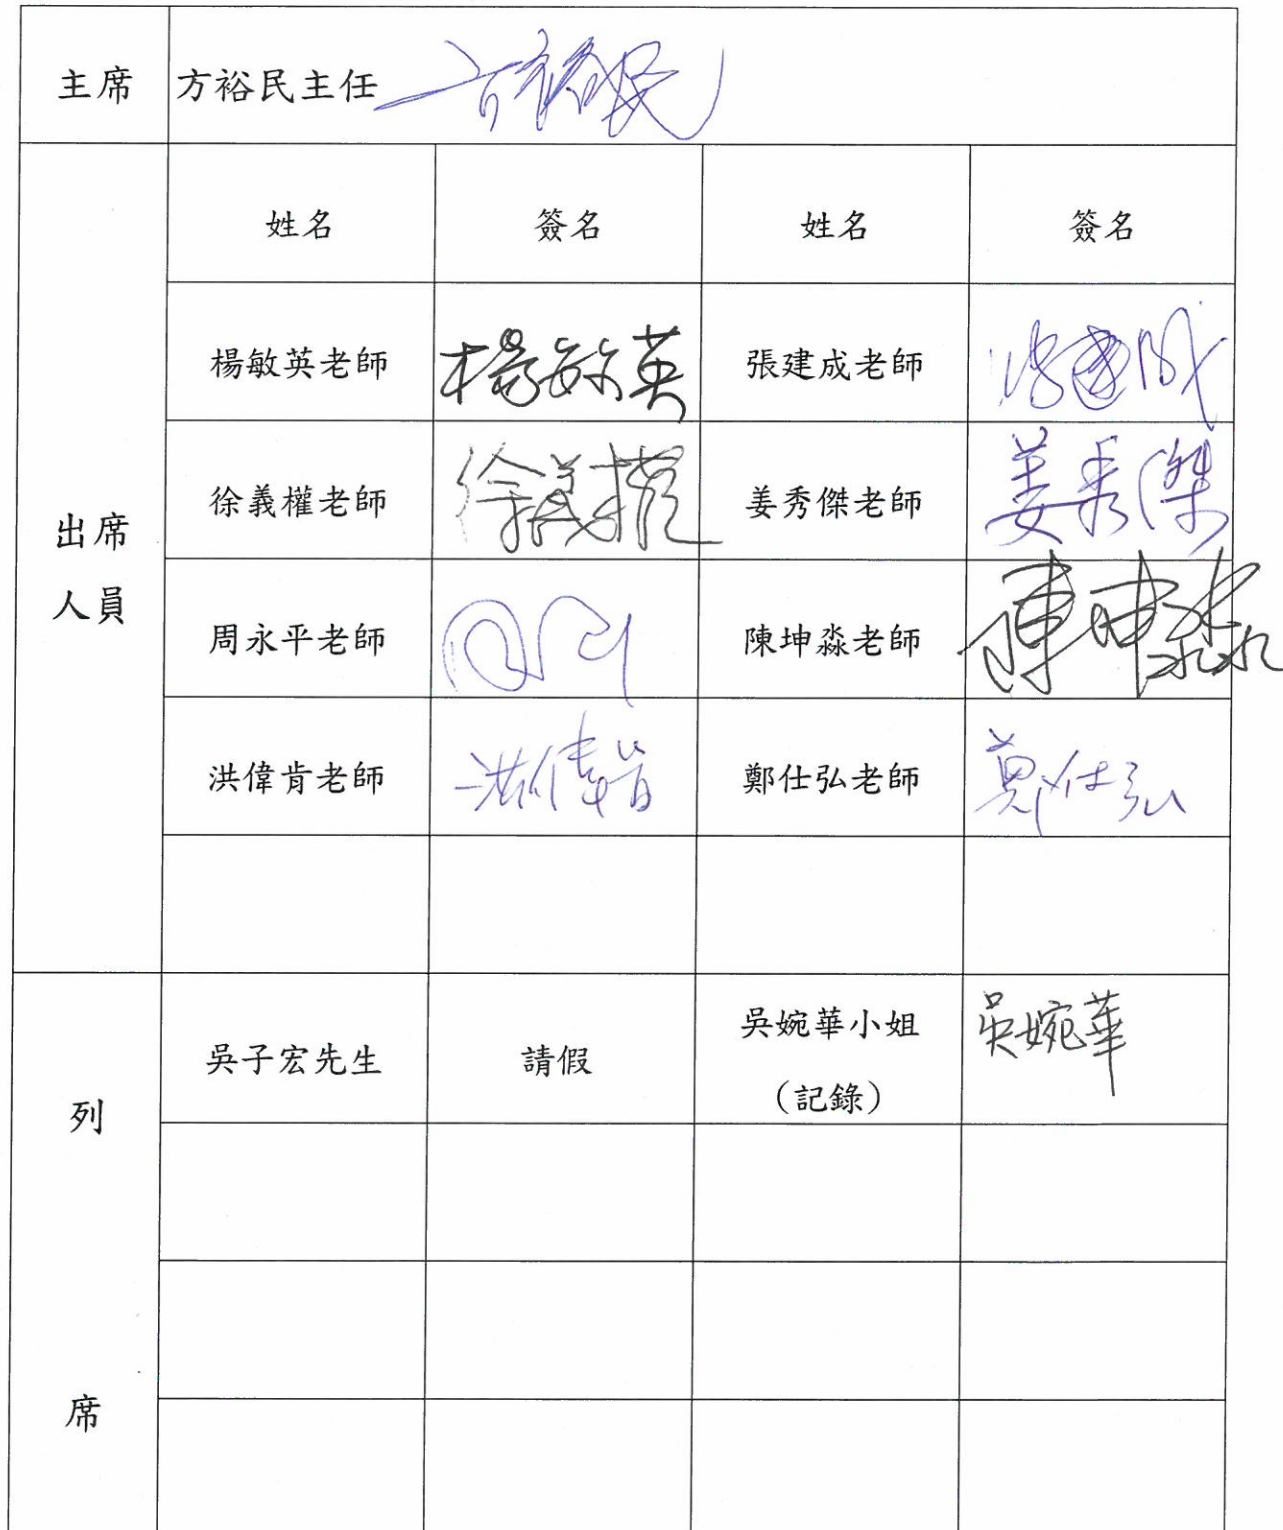 主席 方裕民主任 方裕民
姓名 簽名 姓名 簽名
楊敏英老師 楊敏英 張建成老師
徐義權老師 徐義權 姜秀傑老師 姜秀傑
出席
人員
周永平老師 陳坤淼老師 陳坤淼
洪偉肯老師 洪偉肯 鄭仕弘老師 鄭仕弘
吳子宏先生 請假 吳婉華小姐 吳婉華
(記錄)
列
席